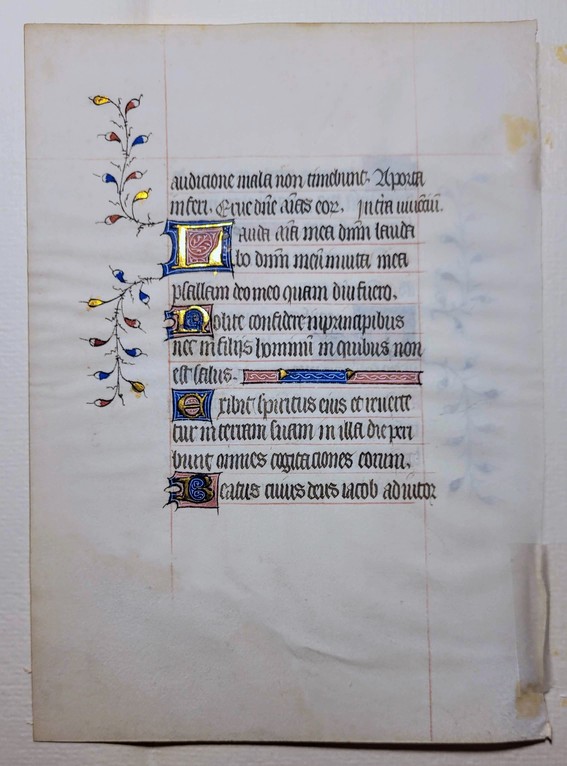 audicione mala non timebunt. A porta
inferi. Erue dñe aīas eor. in terra uiuētiū.
Lauda aīa mea dnm lauda
bo dnm meū in uita mea
psallam deo meo quam diu fuero.
Nolite confidere in principibus
nec in filijs hominū in quibus non
est salus.
Exibit spiritus eius et reuerte
tur in terram suam in illa die peri
bunt omnes cogitaciones eorum.
Beatus cuius deus iacob adiutor